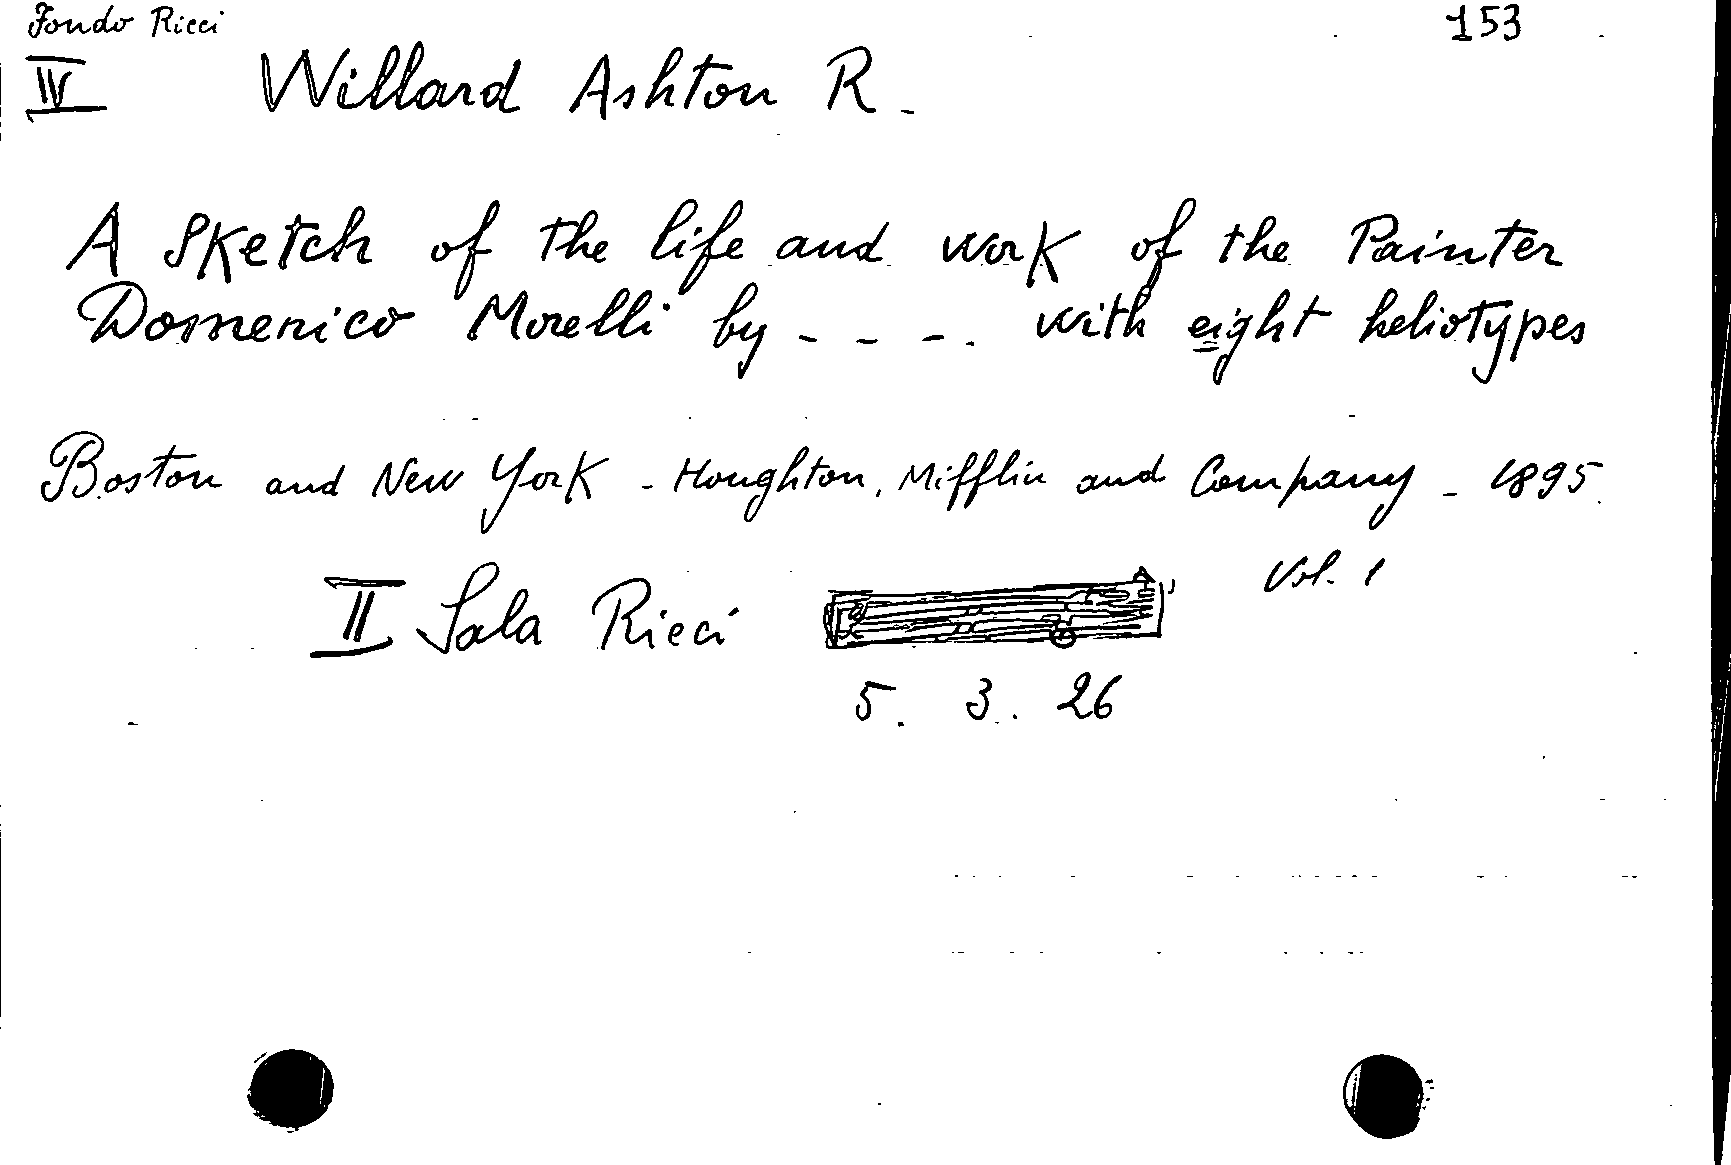 Fondo Ricci 153
IV Willard Ashton R.
A Sketch of the life and work of the Painter
Domenico Morelli by - - - . with eight heliotypes
Boston and New York - Houghton, Mifflin and Company - 1895.
Vol. 1
II Sala Ricci
5. 3. 26